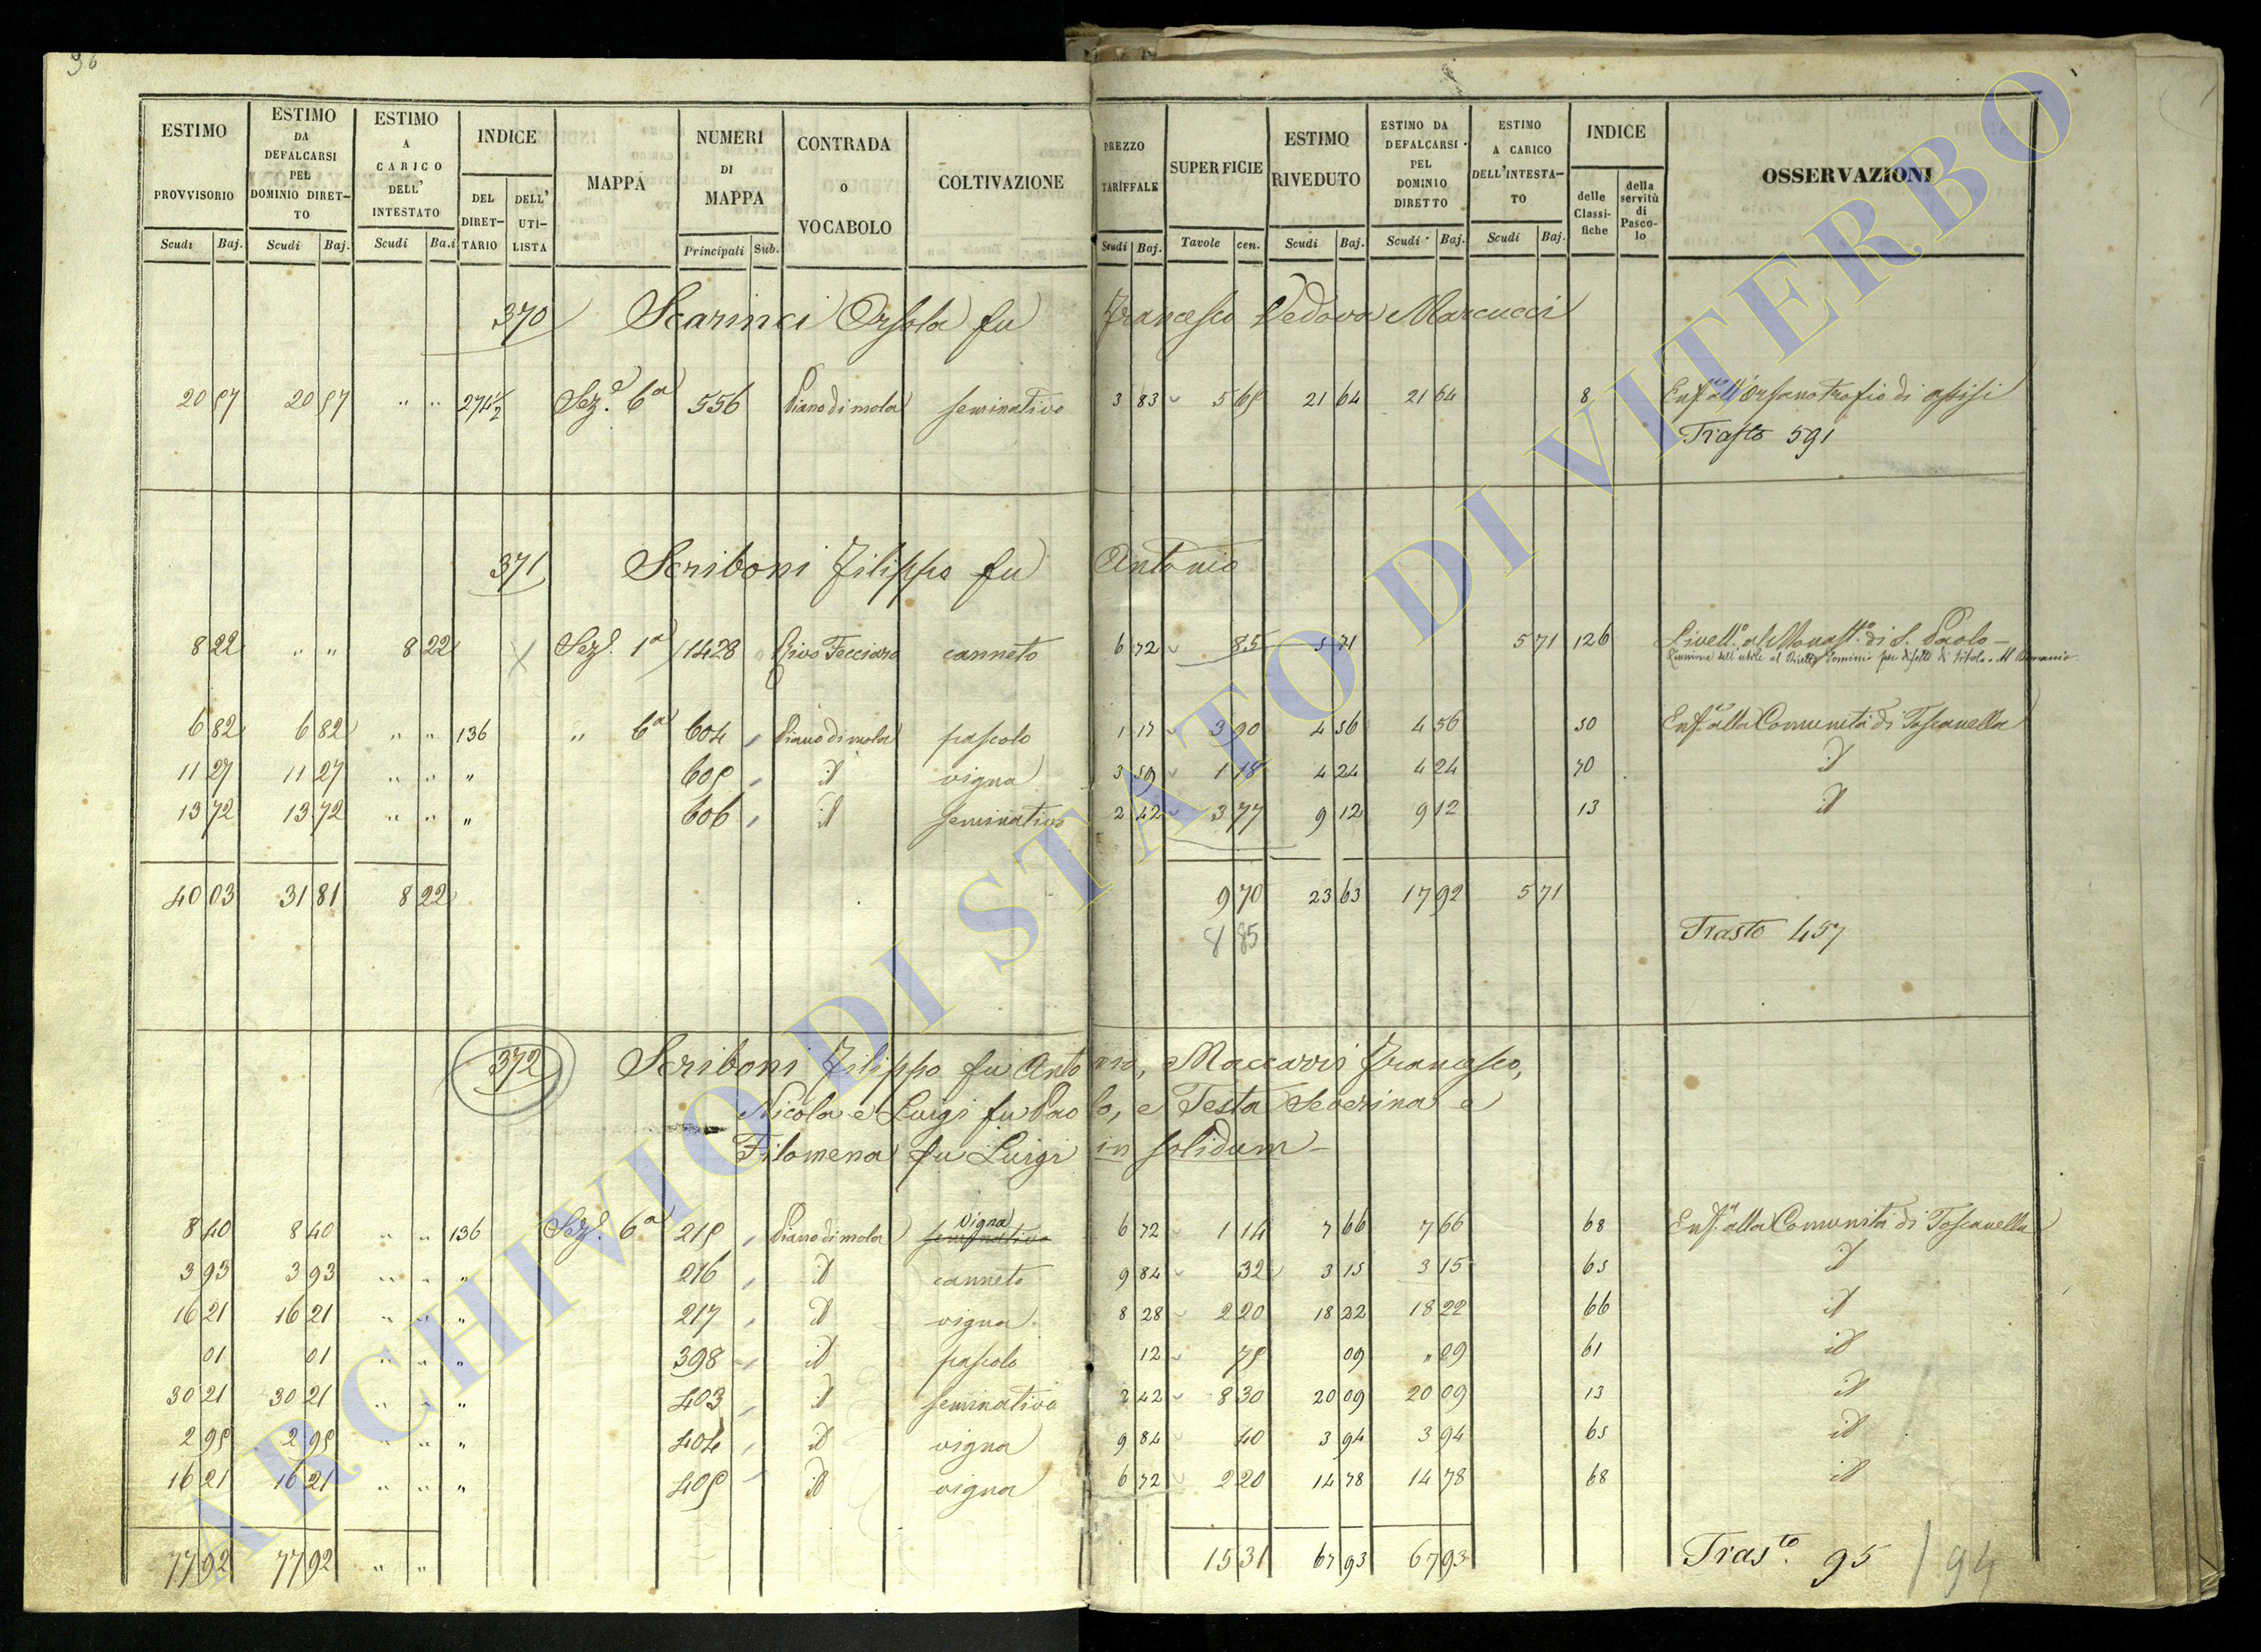 96
ESTIMO PROVVISORIO Scudi Baj.
ESTIMO DA DEFALCARSI PEL DOMINIO DIRETTO Scudi Baj.
ESTIMO A CARICO DELL' INTESTATO Scudi Ba.i
INDICE DEL DIRETTARIO DELL' UTILISTA
MAPPA
NUMERI DI MAPPA Principali Sub.
CONTRADA O VOCABOLO
COLTIVAZIONE
PREZZO TARIFFALE Scudi Baj.
SUPERFICIE Tavole cen.
ESTIMO RIVEDUTO Scudi Baj.
ESTIMO DA DEFALCARSI PEL DOMINIO DIRETTO Scudi Baj.
ESTIMO A CARICO DELL'INTESTATO Scudi Baj.
INDICE delle Classifiche della servitù di Pascolo
OSSERVAZIONI
370 Scarinci Orsola fu Francesco Vedova Marcucci
20 57 20 57 " " 274 1/2 Sez.e 6a 556 Piano di mola seminativo 3 83 5 65 21 64 21 64 8 Enf.a all'Orfanotrofio di Assisi
Trasto 591
371 Scriboni Filippo fu Antonio
8 22 " " 8 22 X Sez.e 1a 1428 Rivo Fecciaro canneto 6 72 85 5 71 5 71 126 Livell.o al Monast.o di S. Paolo
6 82 6 82 " " 136 " 6a 604 Piano di mola pascolo 1 17 3 90 4 56 4 56 50 Enf.a alla Comunità di Toscanella
11 27 11 27 " " " 605 id vigna 3 59 1 18 4 24 4 24 70 id
13 72 13 72 " " " 606 id seminativo 2 42 3 77 9 12 9 12 13 id
40 03 31 81 8 22 9 70 23 63 17 92 5 71
8 85
Trasto 457
372 Scriboni Filippo fu Antonio, Maccarri Francesco,
Nicola e Luigi fu Paolo, e Testa Severina e
Filomena fu Luigi in solidum
8 40 8 40 " " 136 Sez.e 6a 215 Piano di mola vigna seminativo 6 72 1 14 7 66 7 66 68 Enf.a alla Comunità di Toscanella
3 93 3 93 " " " 216 id canneto 9 84 32 3 15 3 15 65 id
16 21 16 21 " " " 217 id vigna 8 28 2 20 18 22 18 22 66 id
01 01 " " " 398 id pascolo 12 75 09 " 09 61 id
30 21 30 21 " " " 403 id seminativo 2 42 8 30 20 09 20 09 13 id
2 95 2 95 " " " 404 id vigna 9 84 40 3 94 3 94 65 id
16 21 16 21 " " " 405 id vigna 6 72 2 20 14 78 14 78 68 id
77 92 77 92 " " 15 31 67 93 67 93 Tras.to 95 / 94
ARCHIVIO DI STATO DI VITERBO